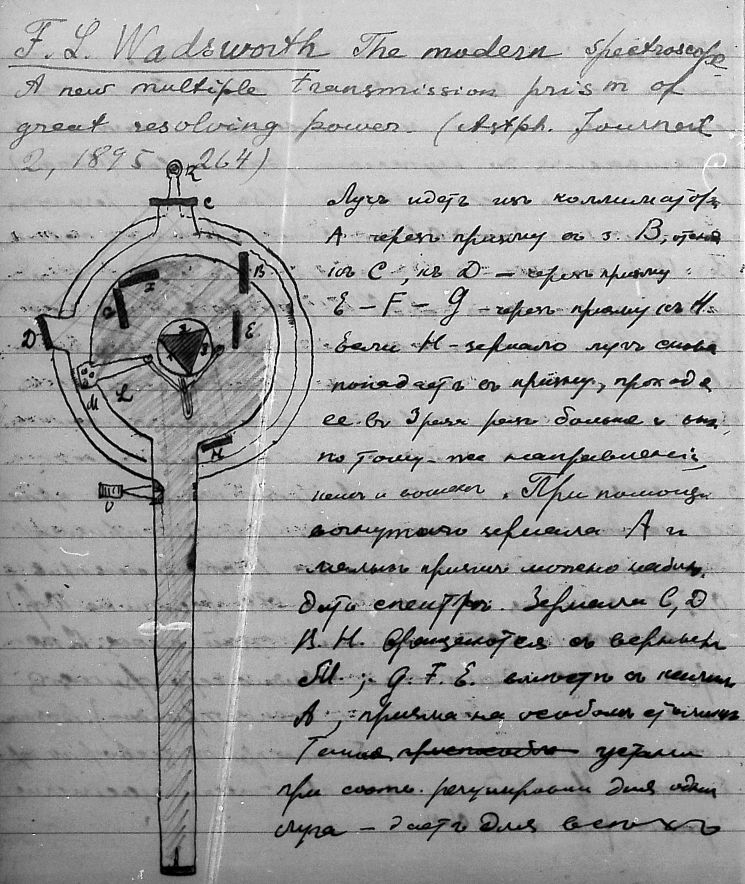 F. L. Wadsworth The modern spectroscope
A new multiple transmission prism of
great resolving power. (Astph. Journal
2, 1895 264)
K
C
Лучъ идетъ изъ коллиматора
A черезъ призму въ B,
B
D
къ C, къ D – черезъ призму
E
E – F – G – черезъ призму къ H.
Если H – зеркало лучъ снова
M
L
попадаетъ въ призму, проходя
ее въ 3 раза больше и
H
по тому-же направленію
. При помощи
вогнутаго зеркала A и
призмъ можно наблю
дать спектръ. Зеркала C, D
B. H. вращаются съ
M; G. F. E. вмѣстѣ съ
A, призма на особомъ столикѣ
приспособле
при регулировки для одн
луча – даетъ для всѣхъ